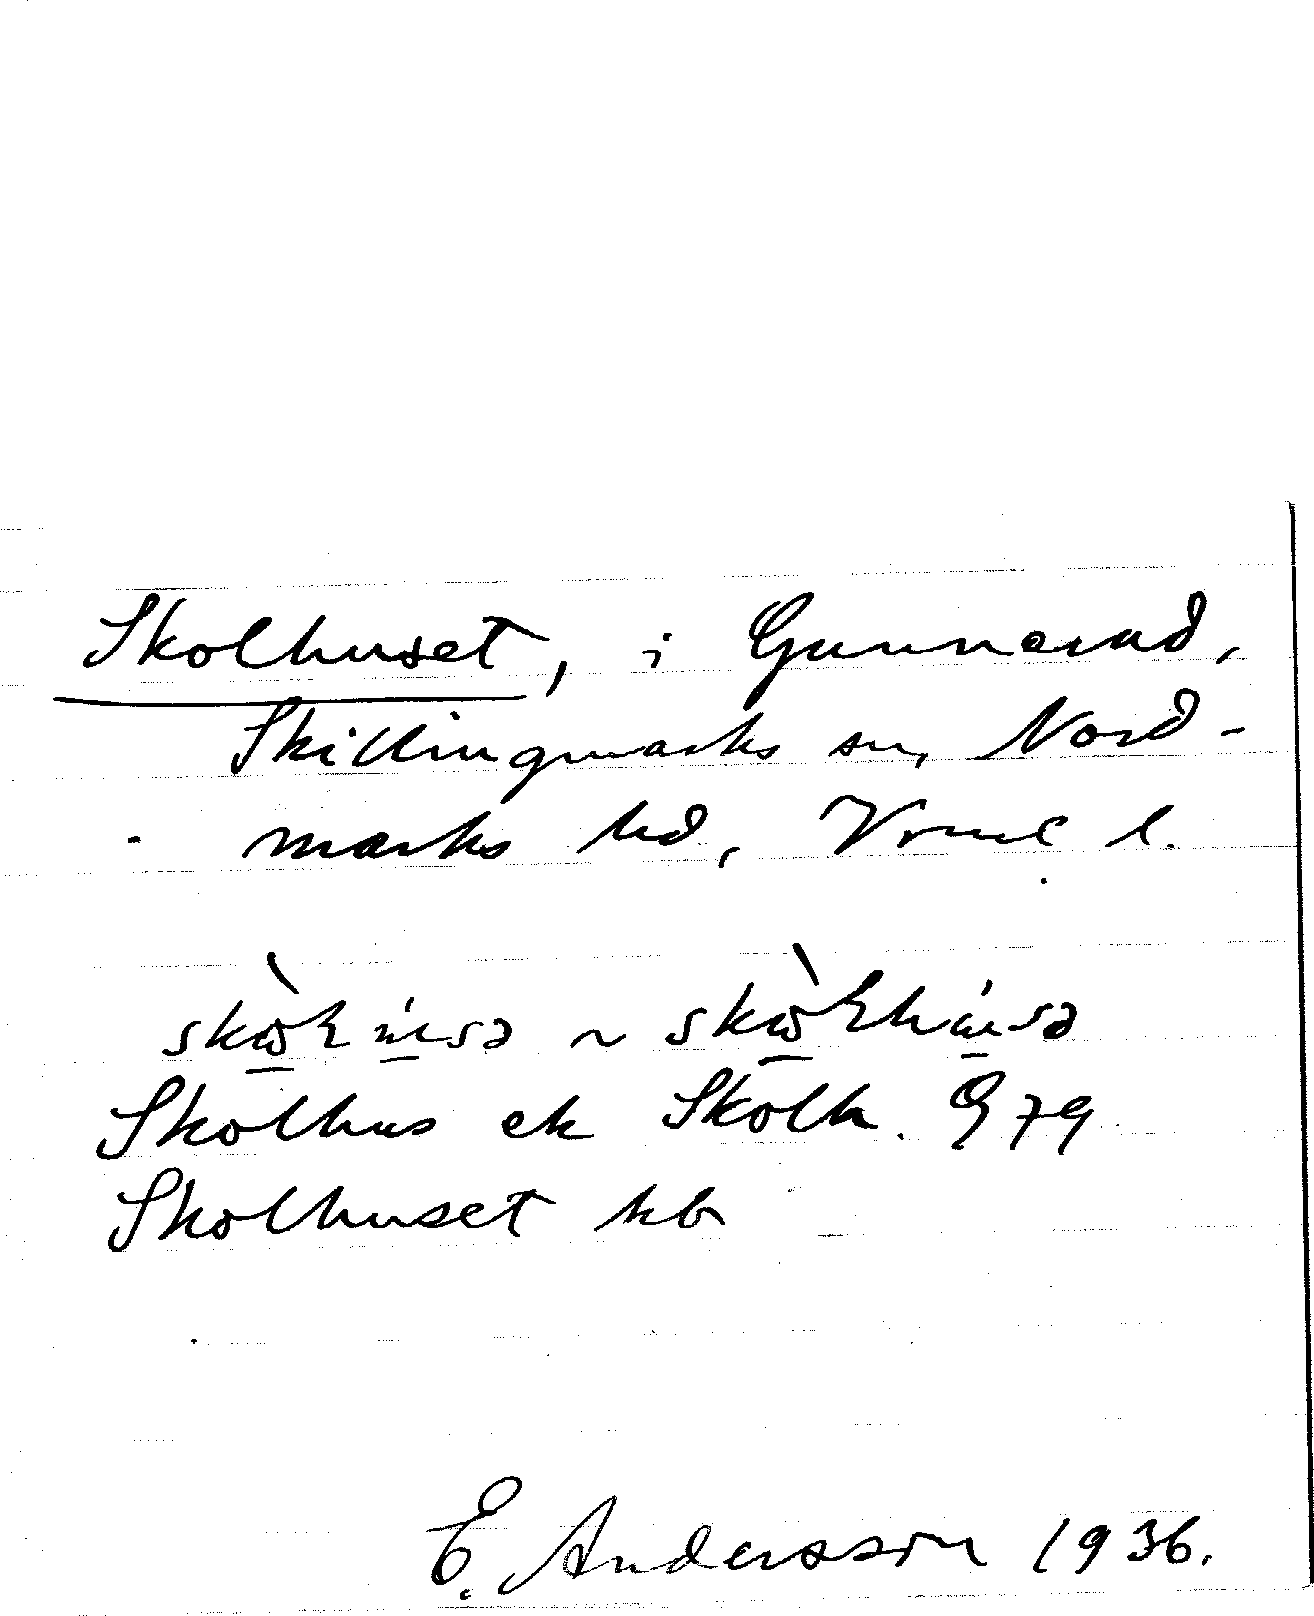 Skolhuset, i Gunnerud,
Skillingmarks sn, Nord-
marks hd, Vrml l.
Skolhus ek Skolh. G 79
Skolhuset kb
E. Andersson 1936.